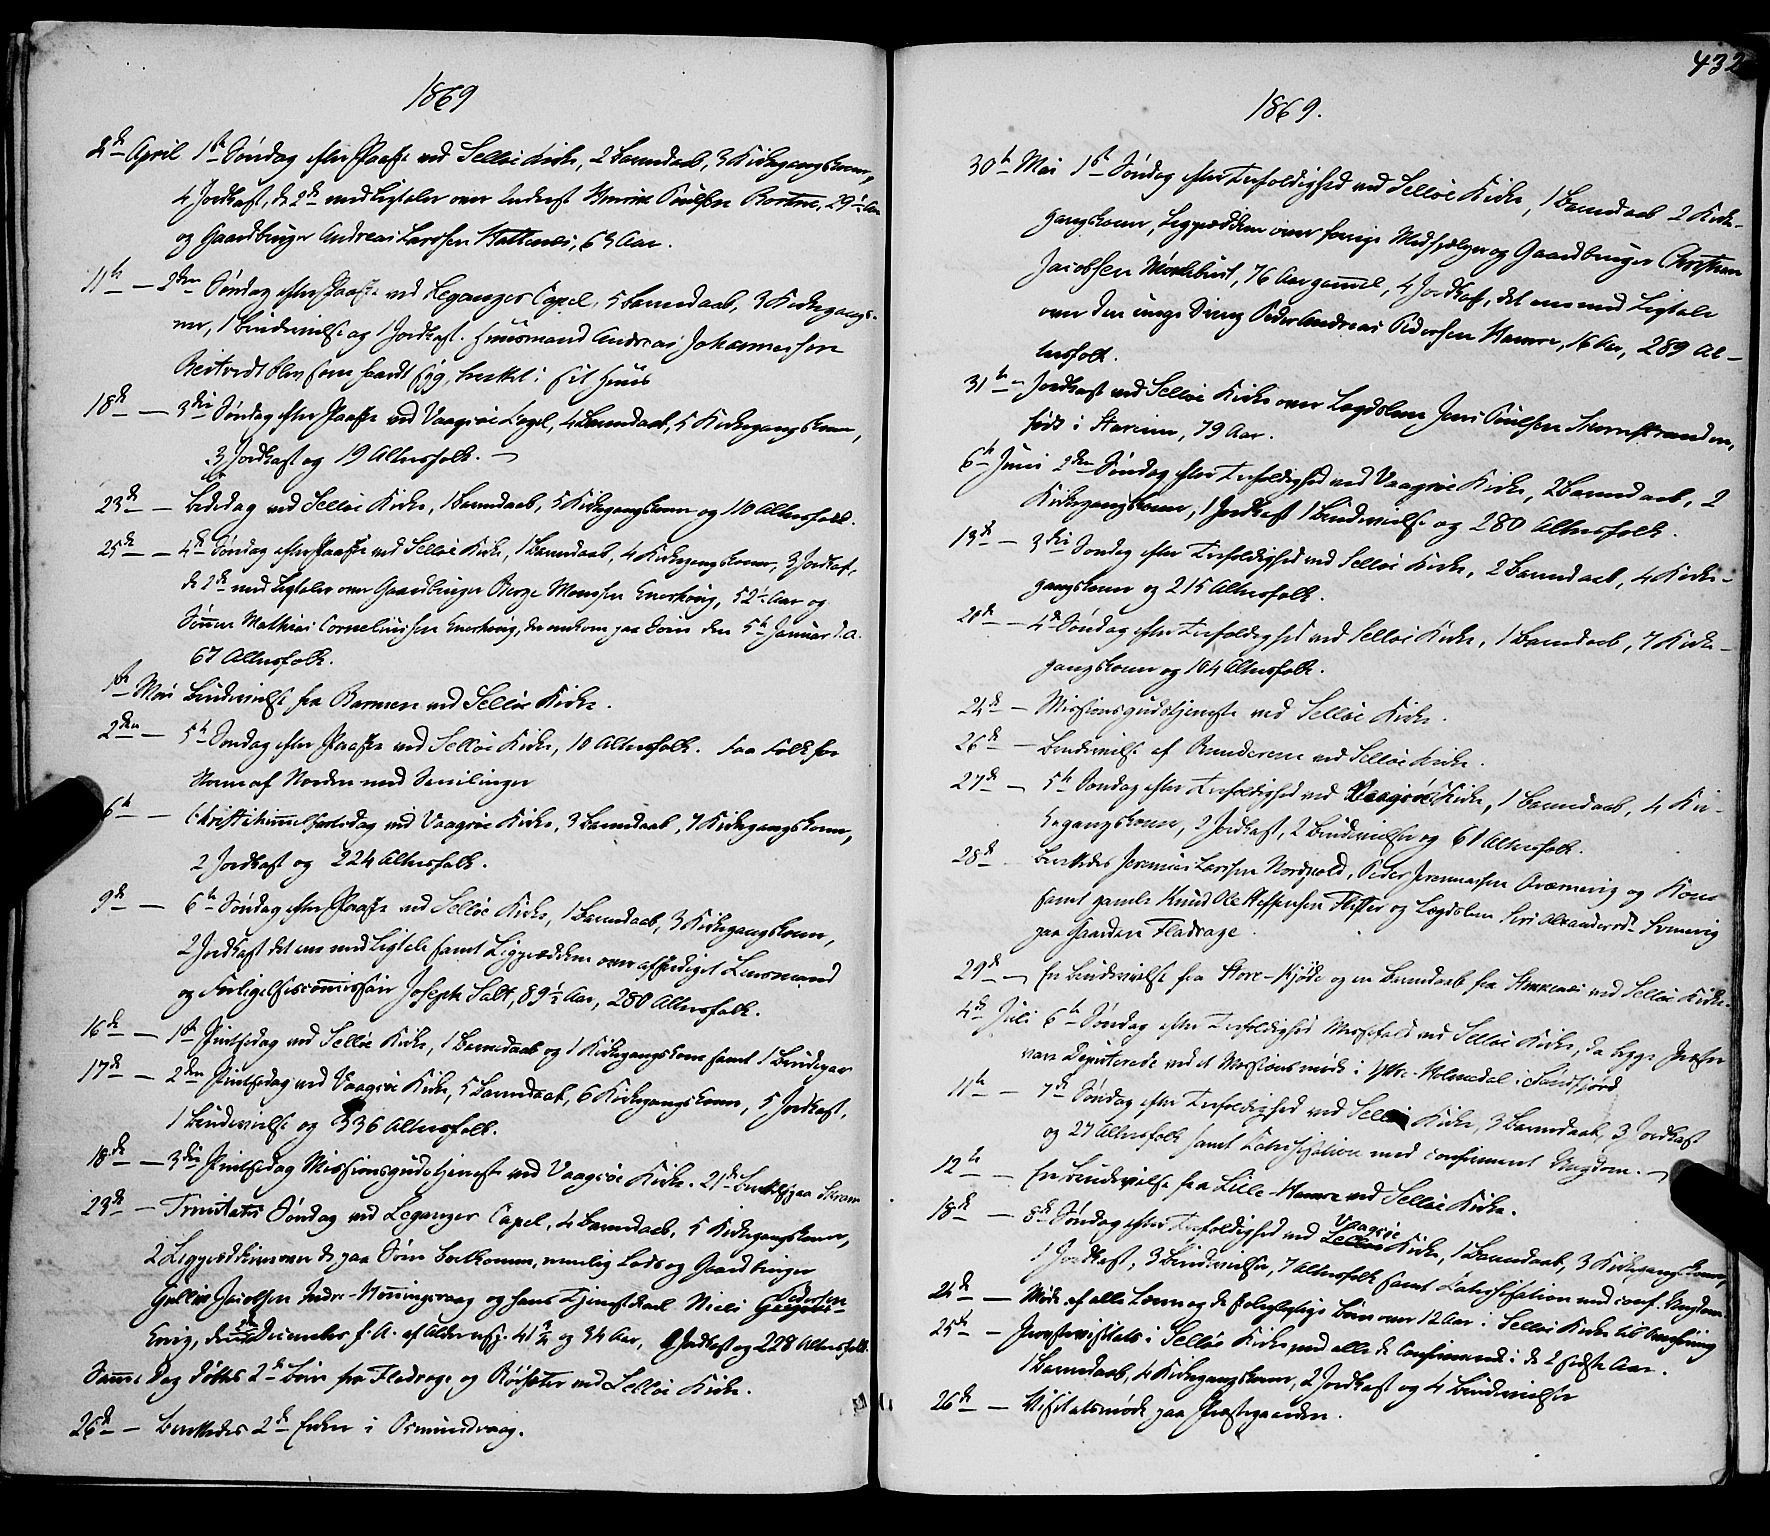 1869
4de April 1ste Søndag efter Paaske ved Selløe Kirke, 2 Barnedaab, 3 Kirkegangskoner,
4 Jordkast, de 2de med Ligtaler over Inderst Henrik Poulsen Rostne, 29½ Aar
og Gaardbruger Andreas Larssen Hattenes, 63 Aar.
11te — 2den Søndag efter Paaske ved Leganger Capel, 5 Barnedaab, 3 Kirkegangsko-
ner, 1 Brudevielse og 1 Jordkast. Huusmand Andreas Johannessen
som haardt syg, berettet i sit Huus
18de — 3die Søndag efter Paaske ved Vaagsøe Capel, 4 Barnedaab, 5 Kirkegangskoner,
3 Jordkast og 19 Altersfolk. —
23de — Bededag ved Selløe Kirke, 1 Barnedaab, 5 Kirkegangskoner og 110 Altersfolk.
25de — 4de Søndag efter Paaske ved Selløe Kirke, 1 Barnedaab, 4 Kirkegangskoner, 3 Jordkast,
de 2de med Ligtaler over Gaardbruger Børge Monssen Enerhoug, 52½ Aar og
Sønnen Mathias Corneliussen Enerhoug, der omkom paa Søen den 5te Januar d.A.
67 Altersfolk.
1ste Mai Brudevielse fra Barmen ved Selløe Kirke.
2den — 5te Søndag efter Paaske ved Selløe Kirke, 10 Altersfolk. Faa Folk for
Storm af Norden med Sneelinger
6te — Christi himmelfartsdag ved Vaagsøe Kirke, 3 Barnedaab, 7 Kirkegangskoner,
2 Jordkast og 224 Altersfolk.
9de — 6te Søndag efter Paaske ved Selløe Kirke, 1 Barnedaab, 3 Kirkegangskoner,
2 Jordkast det ene med Ligtale samt Ligprædiken over afskediget Lensmand
og Forligelsescommissair Joseph Salt, 89½ Aar, 280 Altersfolk.
16de — 1ste Pintsedag ved Selløe Kirke, 1 Barnedaab og 1 Kirkegangskone samt 1 Brudepar
17de — 2den Pintsedag ved Vaagsøe Kirke, 5 Barnedaab, 6 Kirkegangskoner, 5 Jordkast,
1 Brudevielse og 336 Altersfolk.
18de — 3die Pintsedag Missionsgudstjeneste ved Vaagsøe Kirke. 21de paa
23de — Trinitatis Søndag ved Leganger Capel, 4 Barnedaab, 5 Kirkegangskoner,
2 Ligprædikener over de paa Søen bortkomne, nemlig Lods og Gaardbruger
Gullik Jacobsen Indre-Honningsvaag og hans Tjenestekarl Niels Pedersen
Ervig, December f.A. af Alder resp. 41 og 34 Aar, Jordkast og 228 Altersfolk.
Samme Dag døbtes 2de Børn fra Fladrage og Røisæter ved Selløe Kirke.
26de — Berettedes 2de Enker i Osmundvaag.
432
1869.
30te Mai 1ste Søndag efter Trefoldighed ved Selløe Kirke, 1 Barnedaab 2 Kirke-
gangskoner, Ligprædiken over forrige Medhjælper og Gaardbruger Christian
Jacobsen Mørkebust, 76 Aar gammel, 4 Jordkast, det ene med Ligtale
over den unge Dreng Peder Andreas Pedersen Hamre, 16 Aar, 289 Al-
tersfolk.
31te — Jordkast ved Selløe Kirke over Lægdslem Jens Poulsen
født i Stavum, 79 Aar.
6te Juni 2den Søndag efter Trefoldighed ved Vaagsøe Kirke, 2 Barnedaab, 2
Kirkegangskoner, 1 Jordkast 1 Brudevielse og 280 Altersfolk.
13de — 3die Søndag efter Trefoldighed ved Selløe Kirke, 2 Barnedaab, 4 Kirke-
gangskoner og 215 Altersfolk.
20de — 4de Søndag efter Trefoldighed ved Selløe Kirke, 1 Barnedaab, 7 Kirke-
gangskoner og 104 Altersfolk.
24de — Missionsgudstjeneste ved Selløe Kirke.
26de — Brudevielse af Bønderne ved Selløe Kirke.
27de — 5te Søndag efter Trefoldighed ved Vaagsøe Kirke, 1 Barnedaab, 4 Kir-
kegangskoner, 2 Jordkast, 2 Brudevielser og 61 Altersfolk.
28de — Berettedes Jeremias Larssen Nordpold, Peder Jeremiassen og Kone
samt gamle Knud Ole Steffensen og Lægdslem Siri Alexandersd.
paa Gaarden Fladrage.
29de — En Brudevielse fra Store-Kjøde og en Barnedaab fra ved Selløe Kirke.
4de Juli 6te Søndag efter Trefoldighed Messefald ved Selløe Kirke, da begge Præster
vare Deputerede ved et Missionsmøde i Yttre-Holmedal i Søndfjord
11te — 7de Søndag efter Trefoldighed ved Selløe Kirke, 3 Barnedaab, 3 Jordkast
og 27 Altersfolk samt Katechisation med confirmeret Ungdom. —
12te — En Brudevielse fra Lille-Hamre ved Selløe Kirke.
18de — 8de Søndag efter Trefoldighed ved Vaagsøe Kirke, 1 Barnedaab, 3 Kirkegangskoner,
1 Jordkast, 3 Brudevielser, 7 Altersfolk samt Katechisation med conf. Ungdom.
24de — Møde af alle Lærere og de skolepligtige Børn over 12 Aar i Selløe Kirke til Overhøring
25de — Provstevisitats i Selløe Kirke med alle de Confirmerede i de 2 sidste Aar.
1 Barnedaab, 4 Kirkegangskoner, 2 Jordkast og 4 Brudevielser
26de — Visitatsmøde paa Præstegaarden.